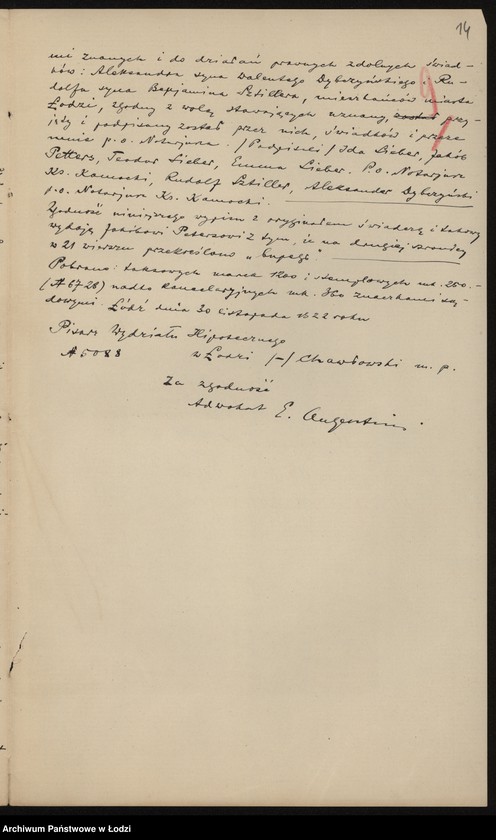 14
mi znanych i do działań prawnych zdolnych świad-
ków: Aleksandra syna Walentego Dybczyńskiego i Ru-
dolfa syna Benjamina Sztillera, mieszkańców miasta
Łodzi, zgodny z wolą stawających uznany, został przy-
jęty i podpisany został przez nich, świadków i przeze
mnie p.o. Notarjusza. /Podpisali/ Ida Lieber, Jakób
Petters, Teodor Lieber, Emma Lieber. P.o. Notarjusza
Ks. Kamocki, Rudolf Sztiller, Aleksander Dybczyński
p.o. Notarjusz Ks. Kamocki.
Zgodność niniejszego wypisu z oryginałem świadczę i takowy
wydaję Jakóbowi Petersowi z tym, że na drugiej stronicy
w 21 wierszu przekreślono "
Pobrano: taksowych marek 1200 i stemplowych mk. 250.-
(№ 6728) nadto kancelaryjnych mk. 360 znaczkami są-
dowymi. Łódź dnia 30 listopada 1922 roku
Pisarz Wydziału Hipotecznego
№ 5088 w Łodzi /-/ Chawłowski m. p.
Za zgodność
Adwokat E. Augustin
Archiwum Państwowe w Łodzi